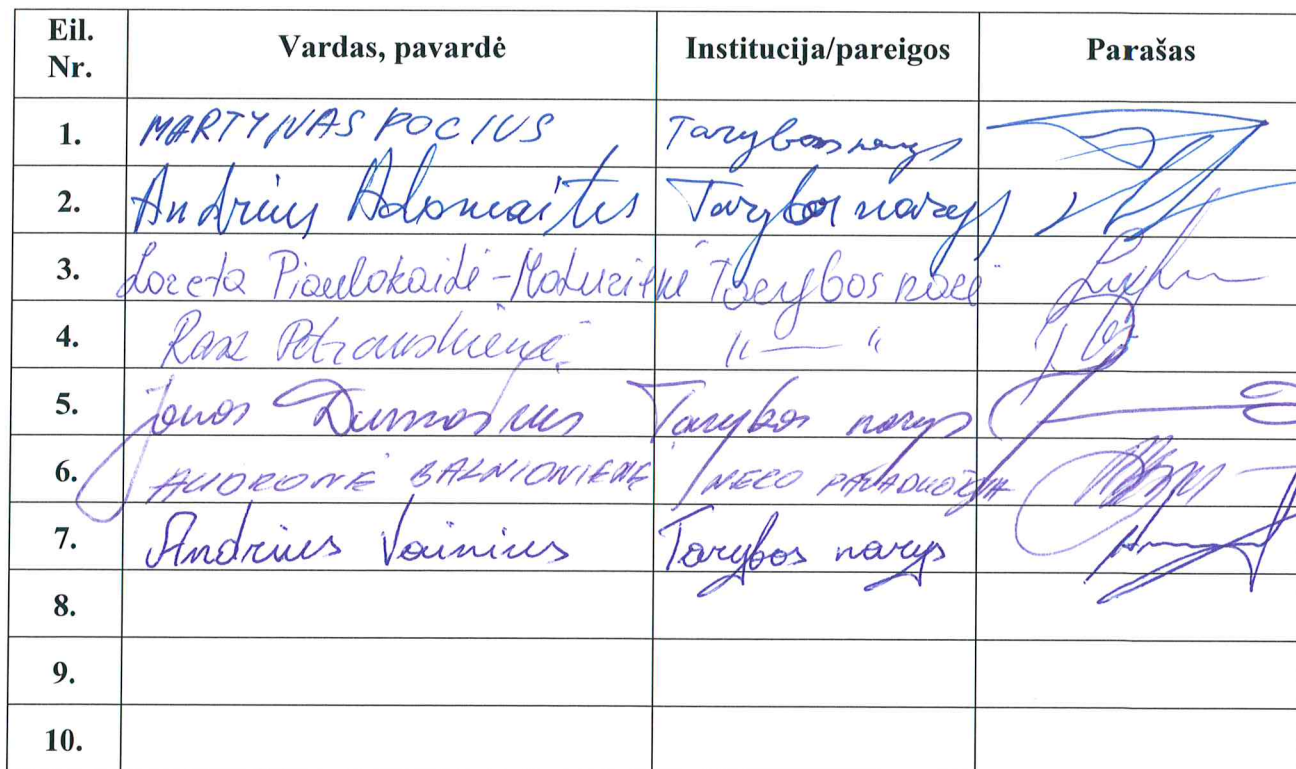 Eil. Nr. Vardas, pavardė Institucija/pareigos Parašas
1. MARTYNAS POCIUS Tarybos narys
2. Andrius Adomaitis Tarybos narys
3. Loreta Piaulokaitė-Motuzienė Tarybos narė
4. Rasa Petrauskienė "—"
5. Jonas Dumašius Tarybos narys
6. AUDRONĖ BALNIONIENĖ MERO PAVADUOTOJA
7. Andrius Vainius Tarybos narys
8.
9.
10.